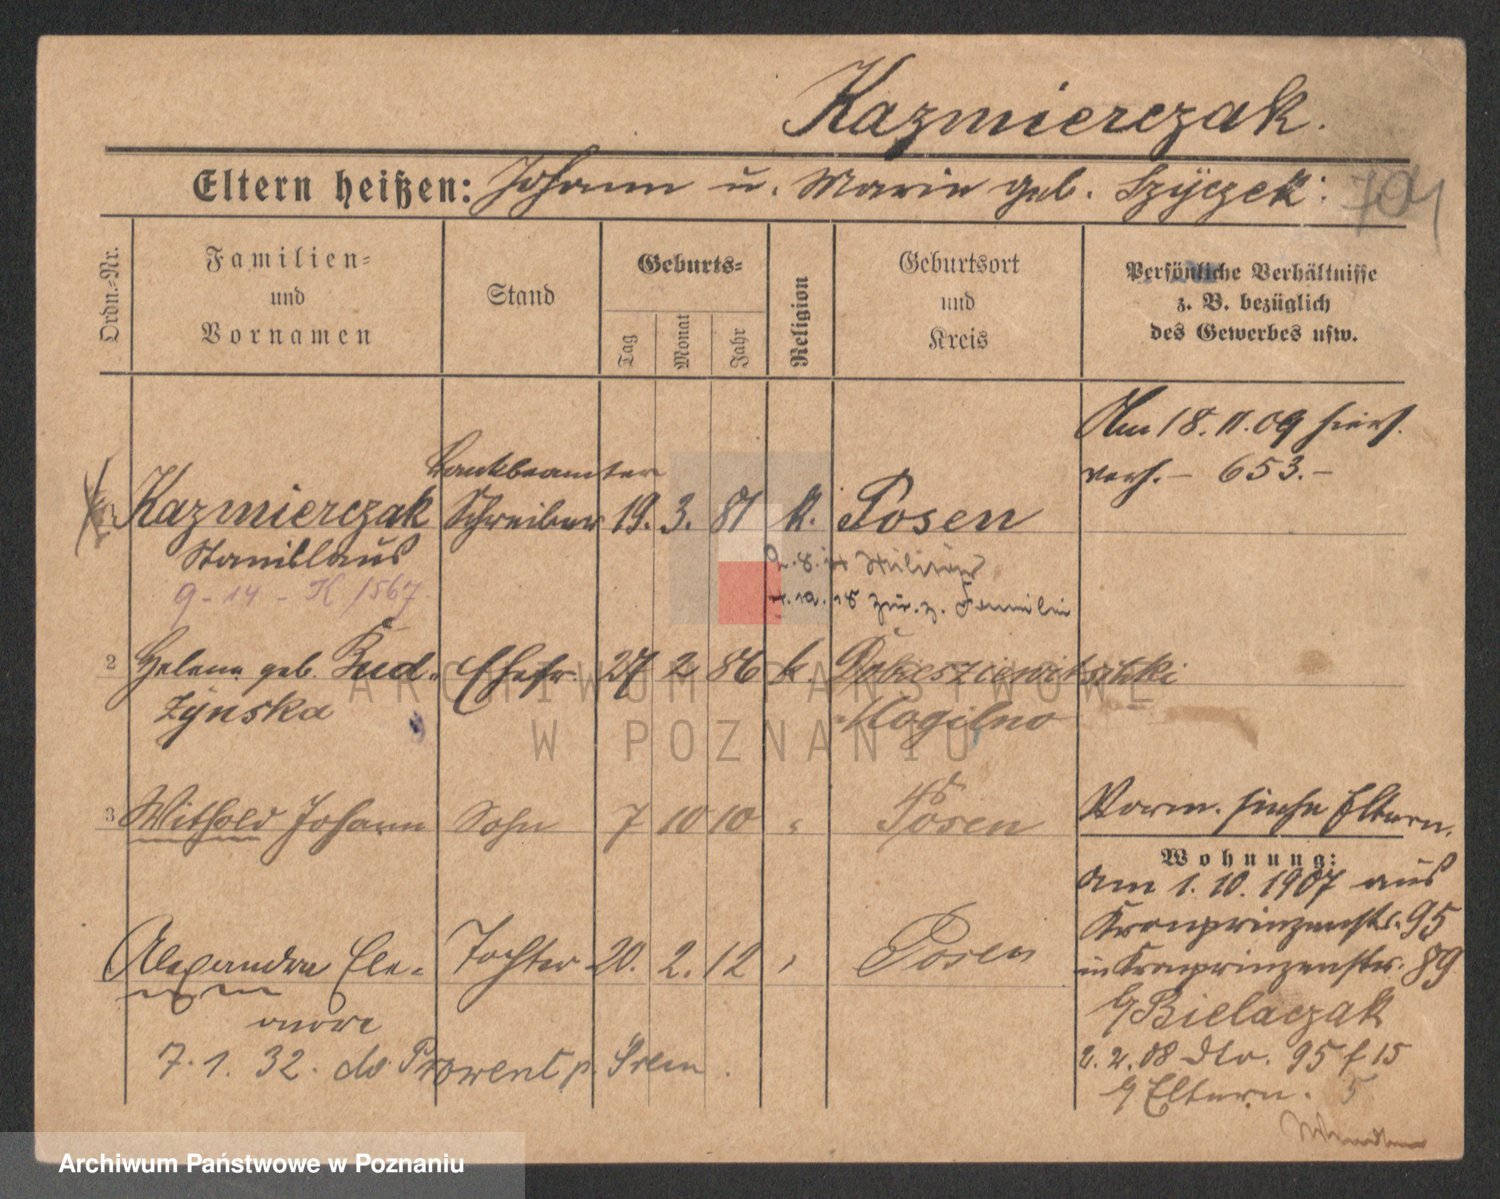 Kazmierczak.
Eltern heißen: Johann u. Marie geb. Szyczek.
704
Ordn.=Nr.
Familien=
und
Vornamen
Stand
Geburts=
Tag
Monat
Jahr
Religion
Geburtsort
und
Kreis
Persönliche Verhältnisse
z. B. bezüglich
des Gewerbes usw.
Am 18.11.09 hier
verh. – 653. –
Bankbeamter
Kazmierczak Schreiber 19. 3. 81 k. Posen
Stanislaus
9 - 14 - K 1567
2. 8. 14 Militär
zur. z. Familie
2 Helene geb. Bud- Ehefr. 27 2 86 k.
zynska Mogilno
3 Withold Johann Sohn 7 10 10 " Posen
Vorm. siehe Eltern.
Wohnung:
am 1. 10. 1907 aus
Kronprinzenstr. 95
in Kronprinzenstr. 89
b/ Bielaczak
2. 2. 08 dto. 95 f 15
b/ Eltern. 5
Alexandra Ele- Tochter 20. 2. 12 " Posen
onore
7. 1. 32. do Prowent p. Śrem.
ARCHIWUM PAŃSTWOWE
W POZNANIU
Archiwum Państwowe w Poznaniu